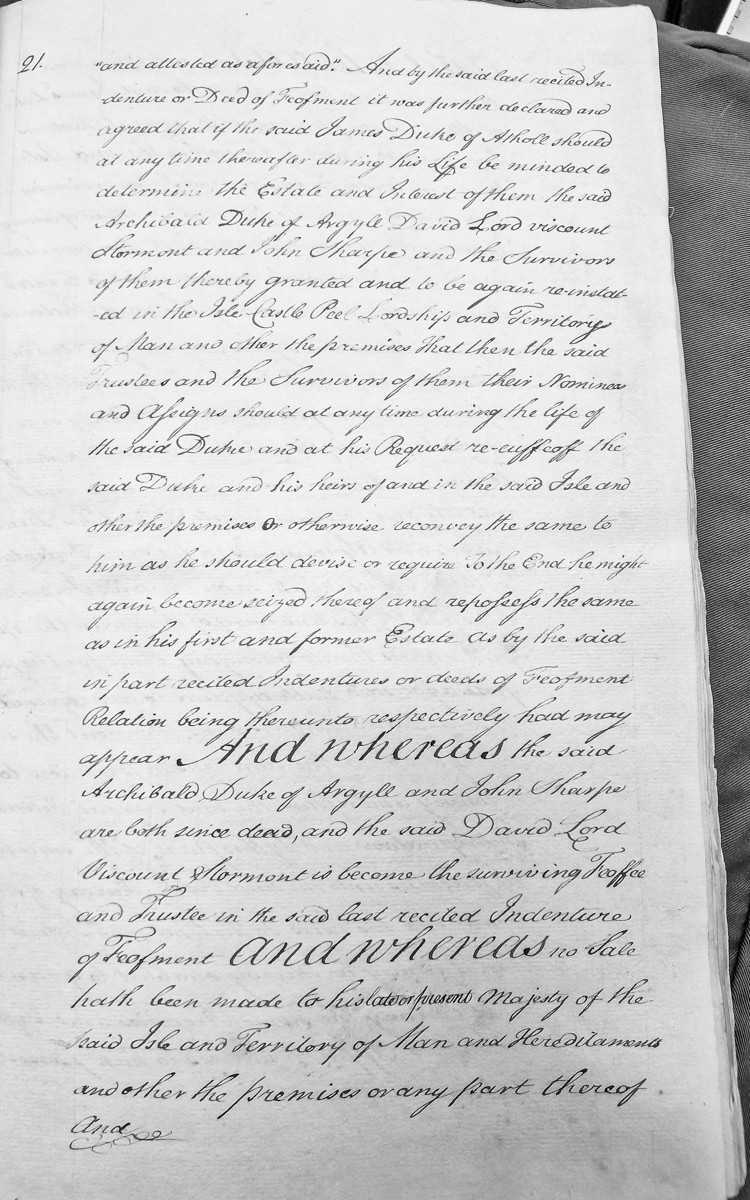 21.
"and attested as aforesaid". And by the said last recited In-
-denture or Deed of Feofment it was further declared and
agreed that if the said James Duke of Atholl should
at any time thereafter during his Life be minded to
determine the Estate and Interest of them the said
Archibald Duke of Argyll David Lord viscount
Stormont and John Sharpe and the Survivors
of them thereby granted and to be again re-instat-
-ed in the Isle Castle Peel Lordship and Territory
of Man and other the premises That then the said
Trustees and the Survivors of them their Nominee
and Assigns should at any time during the life of
the said Duke and at his Request re-enffeoff the
said Duke and his heirs of and in the said Isle and
other the premises Or otherwise reconvey the same to
him as he should devise or require To the End he might
again become seized thereof and repossess the same
as in his first and former Estate as by the said
in part recited Indentures or deeds of Feofment
Relation being thereunto respectively had may
appear And whereas the said
Archibald Duke of Argyll and John Sharpe
are both since dead, and the said David Lord
Viscount Stormont is become the surviving Feoffee
and Trustee in the said last recited Indenture
of Feofment And whereas no Sale
hath been made to his late or present Majesty of the
said Isle and Territory of Man and Hereditaments
and other the premises or any part thereof
And